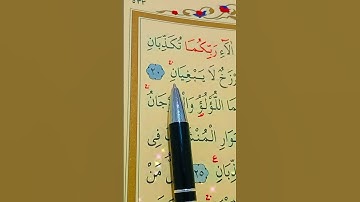 ٥٣٢
الَاءِ رَبِّكُمَا تُكَذِّبَانِ
رْزَخٌ لَا يَبْغِيَانِ ﴿٢٠﴾
مَا اللُّؤْلُؤُ وَالْ جَانُ
جَوَارِ الْمُنْ فِى
ذِّبَانِ ﴿٢٥﴾ مَنْ